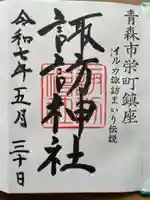 青森市栄町鎮座
イルカ諏訪まいり伝説
諏訪神社
令和七年五月三十日